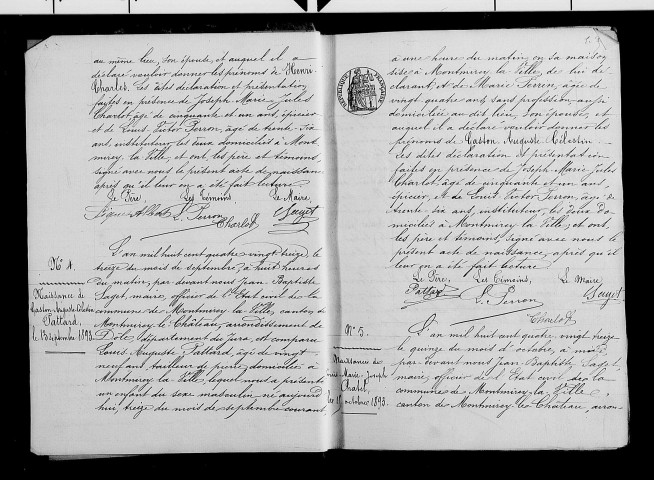 au même lieu, son épouse, et auquel il a
déclaré vouloir donner les prénoms de Henri
Charles. Les dites déclaration et présentation
faites en présence de Joseph Marie Jules
Charlot, âgé de cinquante et un ans, épicier
et de Louis Victor Perron, âgé de trente six
ans, instituteur, les deux domiciliés à Mont
mirey la Ville, et ont, les père et témoins,
signé avec nous le présent acte de naissance
après qu'il leur en a été fait lecture
Le Père, Les Témoins, Le Maire,
L. Perron Saget
Charlot
N° 4.
Naissance de
Gaston Auguste Célestin
Pattard,
le 13 septembre 1893.
L'an mil huit cent quatre vingt treize le
treize du mois de septembre, à huit heures
du matin, par devant nous Jean Baptiste
Saget, maire, officier de l'Etat civil de la
commune de Montmirey la Ville, canton de
Montmirey le Château, arrondissement de
Dôle, département du Jura, est comparu
Louis Auguste Pattard, âgé de vingt
neuf ans, tailleur de pierre, domicilié à
Montmirey la Ville, lequel nous a présenté
un enfant du sexe masculin né aujourd
hui, treize du mois de septembre courant,
RÉPUBLIQUE FRANÇAISE
à une heure du matin, en sa maison
sise à Montmirey la Ville, de lui dé
clarant, et de Marie Perron, âgée de
vingt quatre ans, sans profession, aussi
domiciliée au dit lieu, son épouse, et
auquel il a déclaré vouloir donner les
prénoms de Gaston Auguste Célestin.
Les dites déclaration et présentation
faites en présence de Joseph Marie Jules
Charlot, âgé de cinquante et un ans,
épicier, et de Louis Victor Perron, âgé de
trente six ans, instituteur, les deux do
miciliés à Montmirey la Ville, et ont,
les père et témoins, signé avec nous le
présent acte de naissance, après qu'il
leur en a été fait lecture
Le Père, Les Témoins, Le Maire
Pattard L. Perron Saget
Charlot
N° 5.
Naissance de
Marie Joseph
Chatel,
le 15 octobre 1893.
L'an mil huit cent quatre vingt treize
le quinze du mois d'octobre, à
par devant nous Jean Baptiste Saget,
maire, officier de l'Etat civil de la
commune de Montmirey la Ville,
canton de Montmirey le Château, arron-